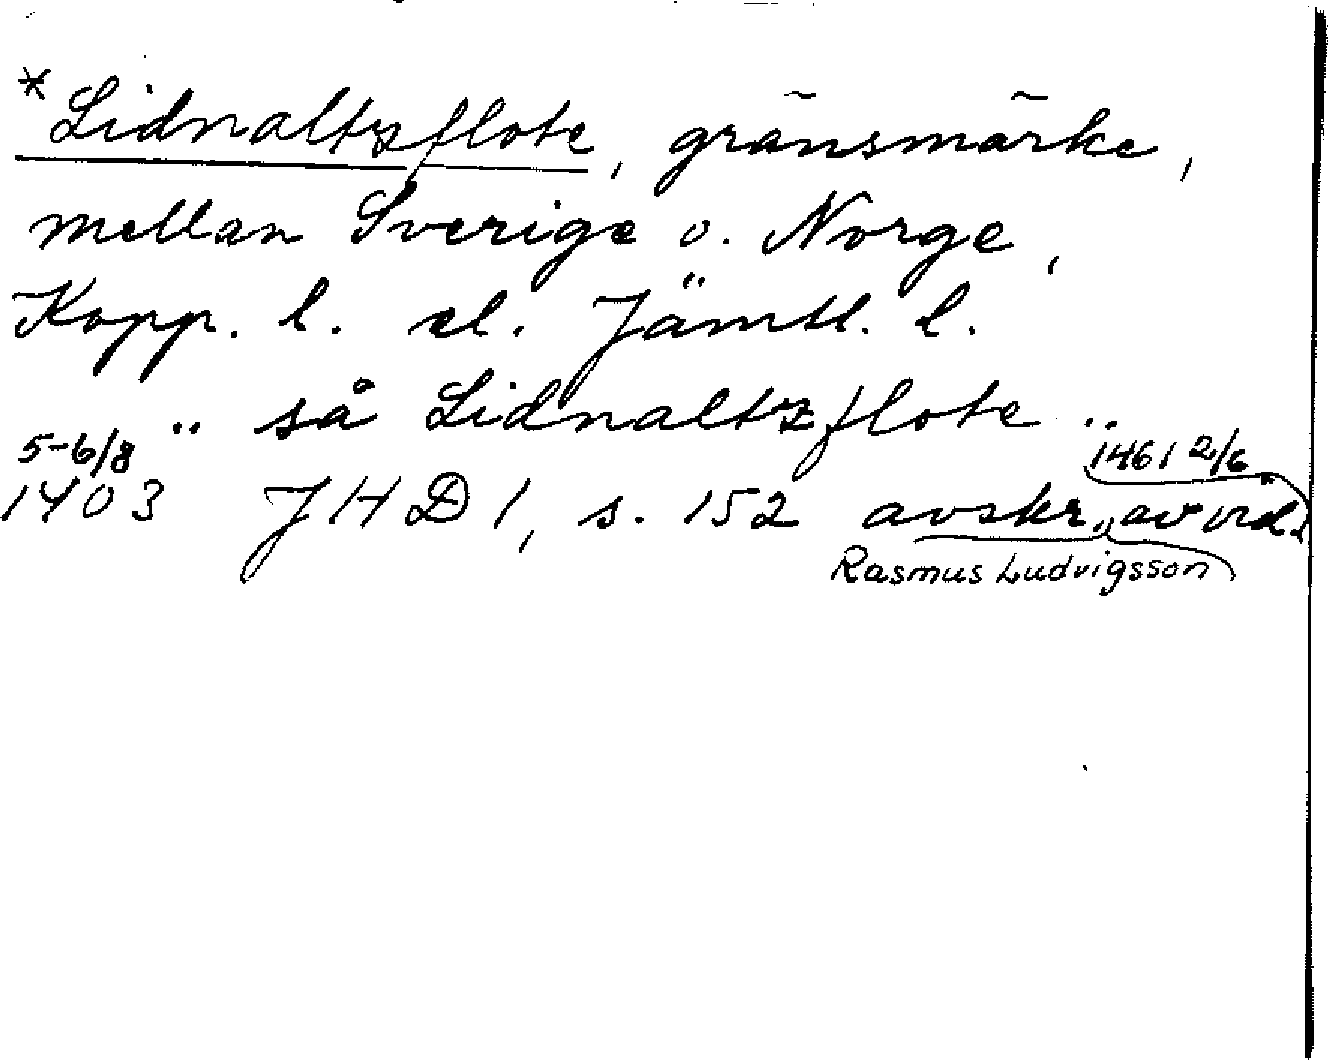 *Lidnaltzflote, gränsmärke,
mellan Sverige o. Norge,
Kopp. l. el. Jämtl. l.
.. så Lidnaltzflote ..
5-6/8 1461 2/6
1403 JHD 1, s. 152 avskr. av vid.
Rasmus Ludvigsson